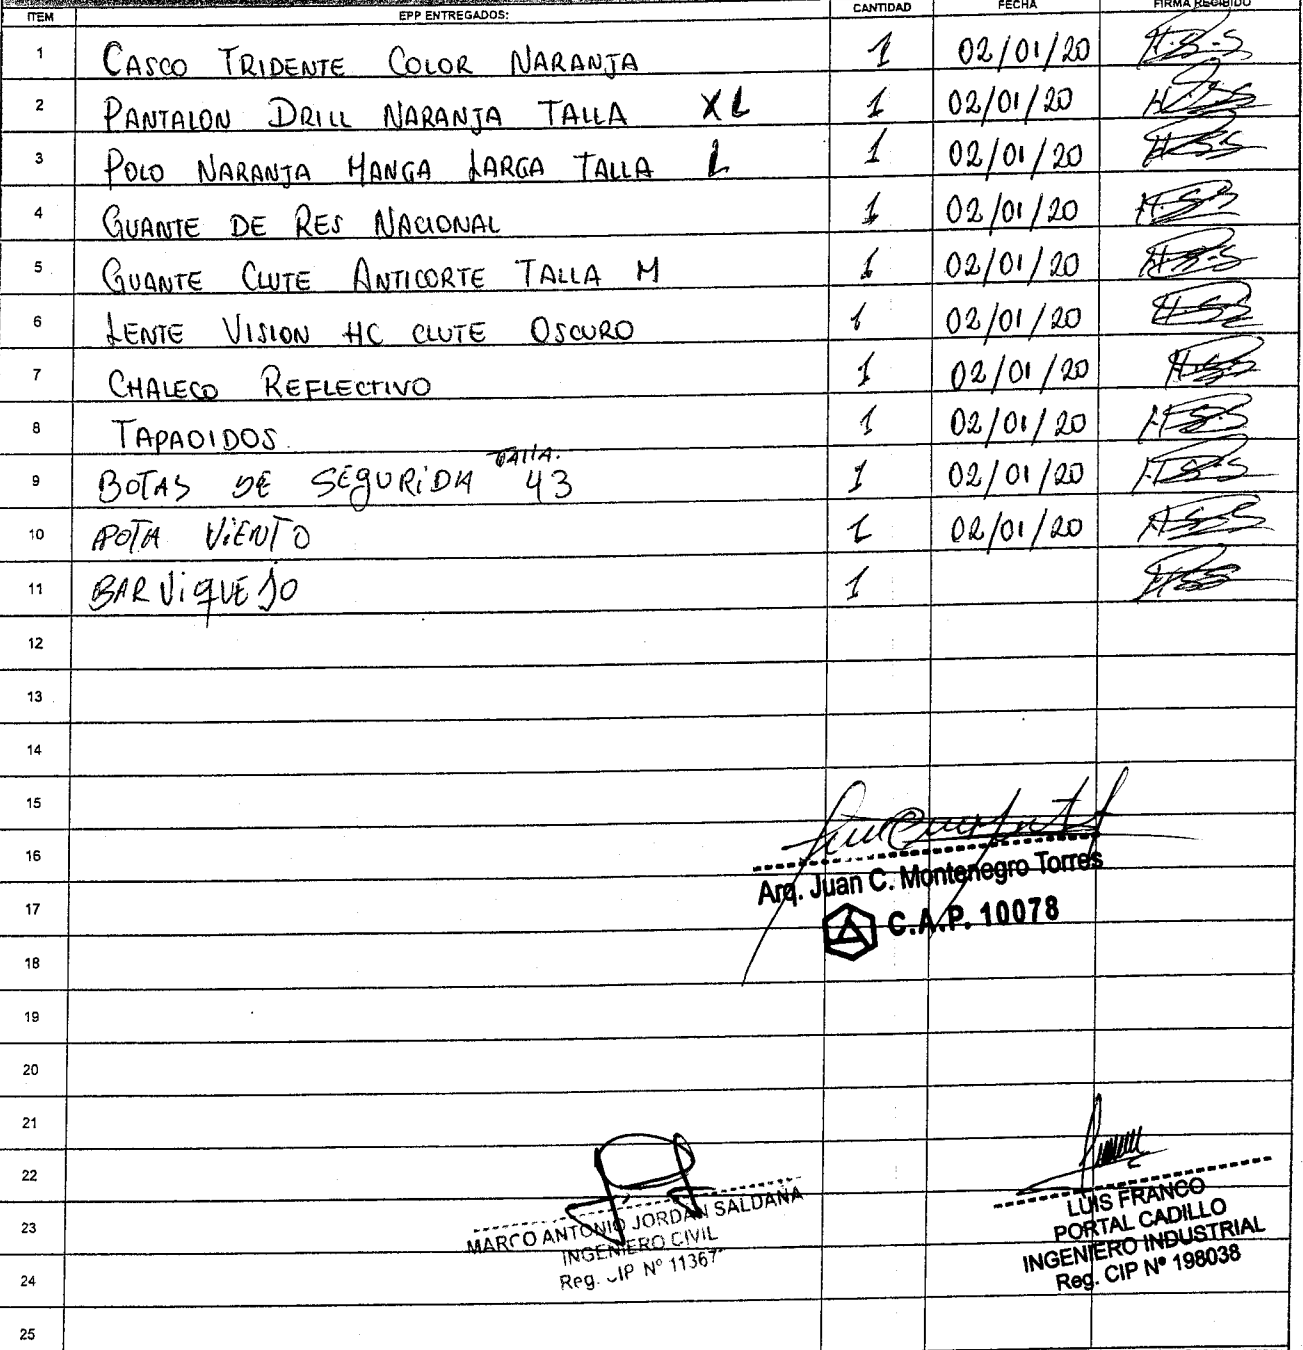 ITEM EPP ENTREGADOS: CANTIDAD FECHA FIRMA RECIBIDO
1 CASCO TRIDENTE COLOR NARANJA 1 02/01/20
2 PANTALON DRILL NARANJA TALLA XL 1 02/01/20
3 POLO NARANJA MANGA LARGA TALLA L 1 02/01/20
4 GUANTE DE RES NACIONAL 1 02/01/20
5 GUANTE CLUTE ANTICORTE TALLA M 1 02/01/20
6 LENTE VISION HC CLUTE OSCURO 1 02/01/20
7 CHALECO REFLECTIVO 1 02/01/20
8 TAPAOIDOS. 1 02/01/20
9 BOTAS DE SEGURIDA TALLA. 43 1 02/01/20
10 VIENTO 1 02/01/20
11 BARVIQUEJO 1
12
13
14
15
16
Arq. Juan C. Montenegro Torres
17
C.A.P. 10078
18
19
20
21
22
23
MARCO ANTONIO JORDAN SALDAÑA
INGENIERO CIVIL
Reg. CIP Nº 11367
LUIS FRANCO
PORTAL CADILLO
INGENIERO INDUSTRIAL
Reg. CIP Nº 198038
24
25